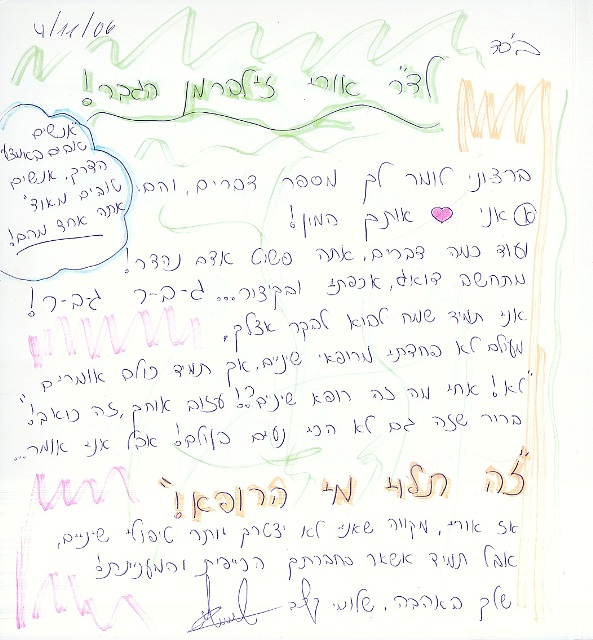 4/11/06
בס"ד
לד"ר אורי זילברמן הגבר!
"אנשים
טובים באמצע
הדרך, אנשים
טובים מאוד"
אתה אחד מהם!
ברצוני לומר לך מספר דברים, והם:
א אני ♥ אותך המון!
ועוד כמה דברים, אתה פשוט אדם נהדר!
מתחשב, דואג, אכפתי ובקיצור... ג-ב-ר ג-ב-ר!
אני תמיד שמח לבוא לבקר אצלך,
מעולם לא פחדתי מרופאי שיניים, אך תמיד כולם אומרים
"לא! אחי מה זה רופא שיניים?! עזוב אותך, זה כואב!"
ברור שזה גם לא הכי נעים בעולם! אבל אני אומר...
"זה תלוי מי הרופא!"
אז אורי, מקווה שאני לא יצטרך יותר טיפולי שיניים,
אבל תמיד אשאר בחברתך הכייפית והמעניינת!
שלך באהבה, שלומי